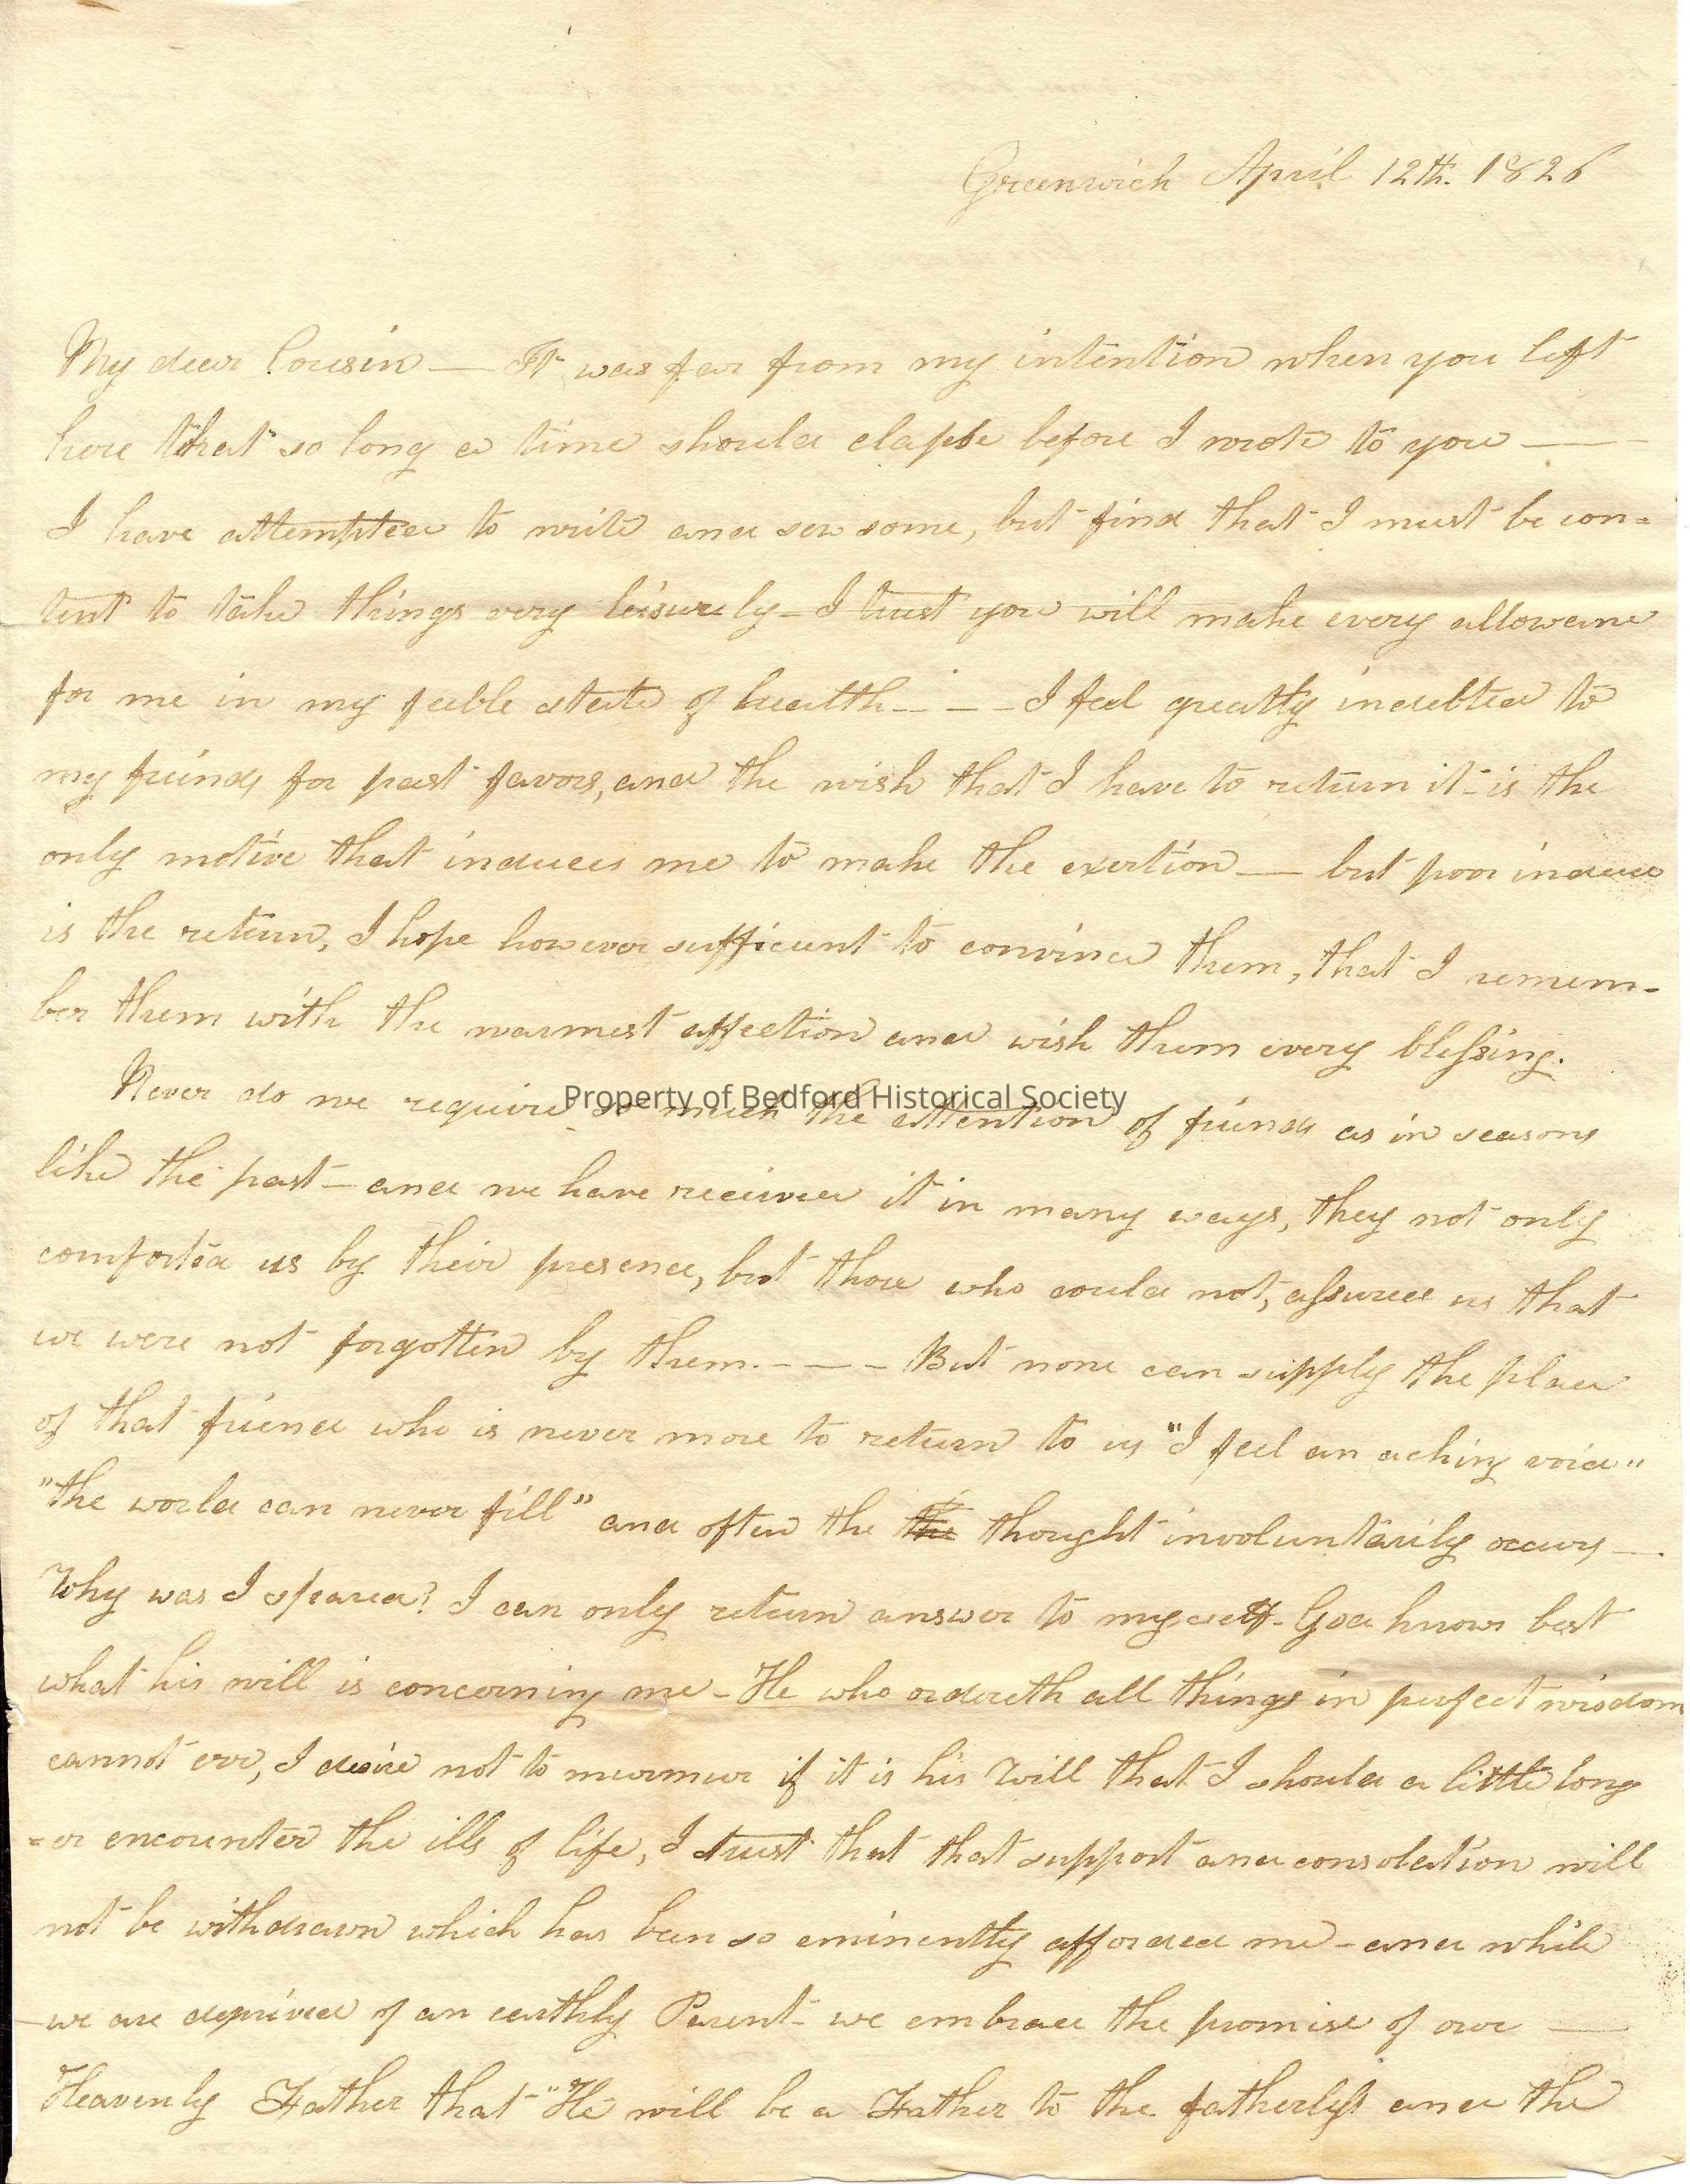 Greenwich April 12th. 1826
My dear Cousin — It was far from my intention when you left
here that so long a time should elapse before I wrote to you —
I have attempted to write and sew some, but find that I must be con=
tent to take things very leisurely – I trust you will make every allowance
for me in my feeble state of health – – – I feel greatly indebted to
my friends for past favors, and the wish that I have to return it – is the
only motive that induces me to make the exertion — but poor indeed
is the return, I hope however sufficient to convince them, that I remem-
ber them with the warmest affection and wish them every blessing.
Never do we require so much the attention of friends as in seasons
Property of Bedford Historical Society
like the past – and we have received it in many ways, they not only
comforted us by their presence, but those who could not, assured us that
we were not forgotten by them. – – – But none can supply the place
of that friend who is never more to return to us "I feel an aching void"
"the world can never fill" and often the the thought involuntarily occurs —
Why was I spared? I can only return answer to myself – God knows best
what his will is concerning me – He who ordereth all things in perfect wisdom
cannot err, I desire not to murmur if it is his Will that I should a little long
=er encounter the ills of life, I trust that that support and consolation will
not be withdrawn which has been so eminently afforded me – and while
– we are deprived of an earthly Parent – we embrace the promise of our —
Heavenly Father that "He will be a Father to the fatherless and the